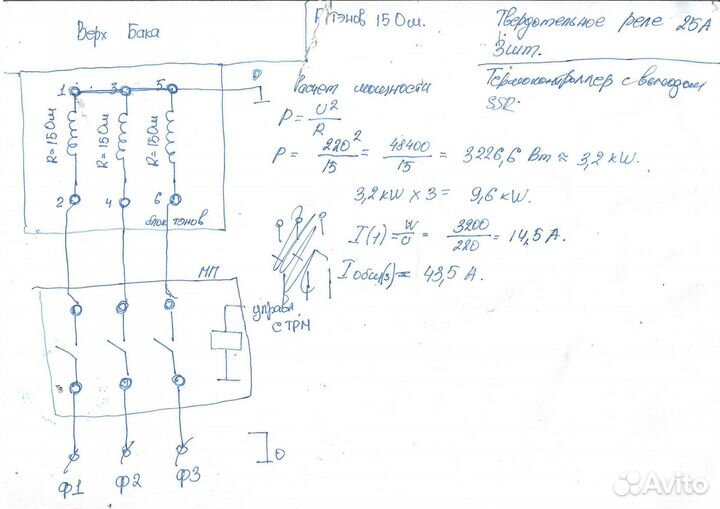 Верх Бака
R тэнов 15 Ом.
Твердотельное реле 25А
3шт.
Термоконтроллер с выходом
SSR.
Расчет мощности
P = U² / R
P = 220² / 15 = 48400 / 15 = 3226,6 Вт ≈ 3,2 kW.
3,2 kW x 3 = 9,6 kW.
I(1) = W / U = 3200 / 220 = 14,5 А.
I общ(3) = 43,5 А.
0
1 3 5
R=15Ом R=15Ом R=15Ом
2 4 6
блок тэнов
МП
управл
с ТРМ
0
Ф1 Ф2 Ф3
Avito